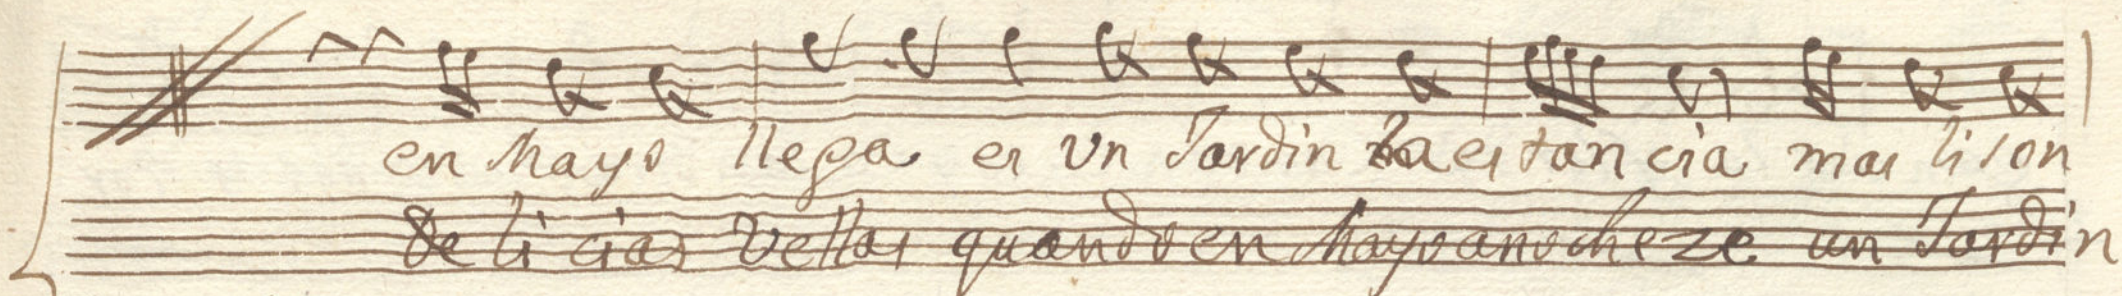 en Mayo llega es Un Jardin la es tan cia mas li son
De li cias Vellas quando en Mayo anocheze un Jardin